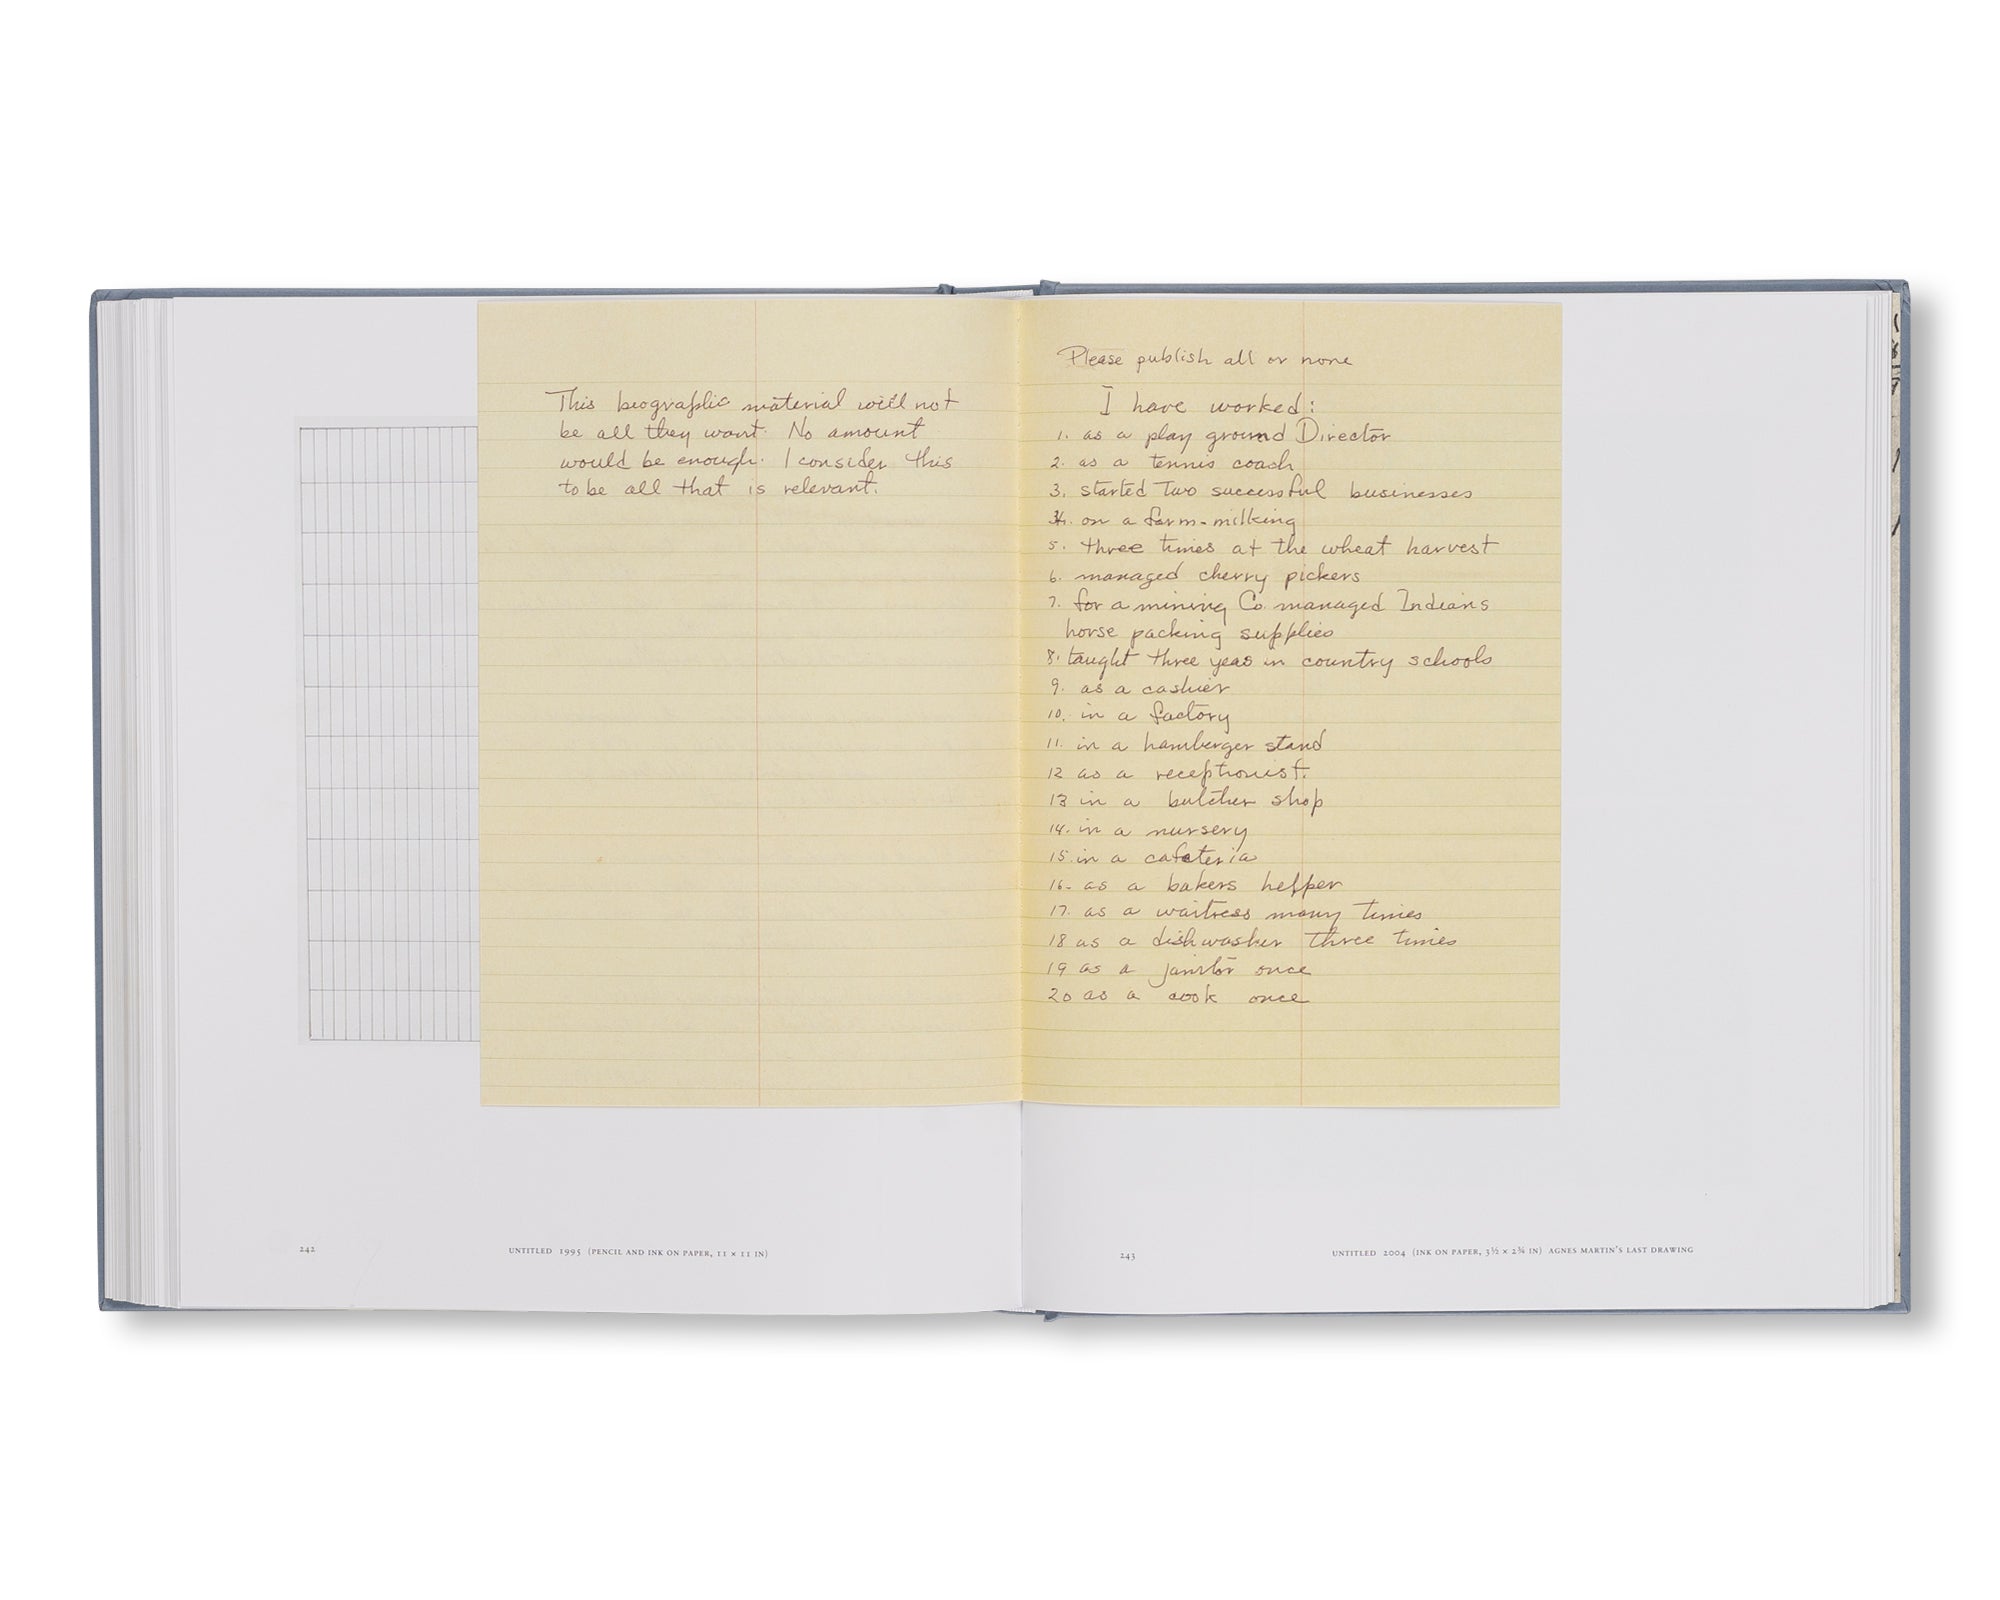 This biografhic material will not
be all they want. No amount
would be enough. I consider this
to be all that is relevant.
Please publish all or none
I have worked:
1. as a play ground Director
2. as a tennis coach
3. started Two successful businesses
4. on a farm-milking
5. three times at the wheat harvest
6. managed cherry pickers
7. for a mining Co. managed Indians
horse packing supplies
8. taught three yeas in country schools
9. as a cashier
10. in a factory
11. in a hamberger stand
12 as a receptionist.
13 in a butcher shop
14. in a nursery
15. in a cafeteria
16- as a bakers helper
17. as a waitress many times
18 as a dishwasher three times
19 as a janitor once
20 as a cook once
242
UNTITLED 1995 (PENCIL AND INK ON PAPER, 11 × 11 IN)
243
UNTITLED 2004 (INK ON PAPER, 3½ × 2¾ IN) AGNES MARTIN'S LAST DRAWING